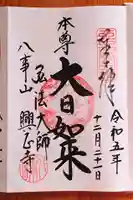 令和五年
十二月二十一日
本尊
大日如来
弘法大師
八事山
興正寺